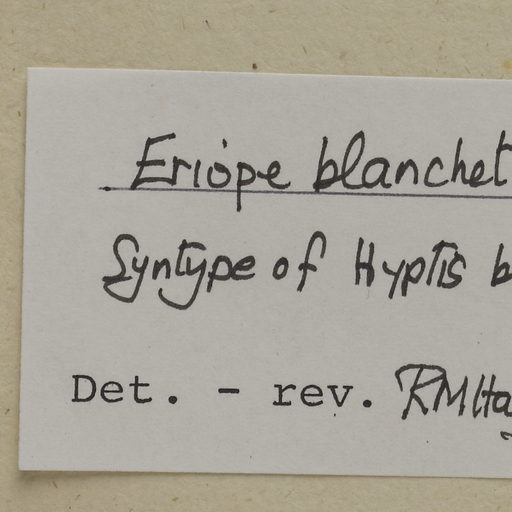 Eriope blanchet
Syntype of Hyptis b
Det. - rev. RMHa